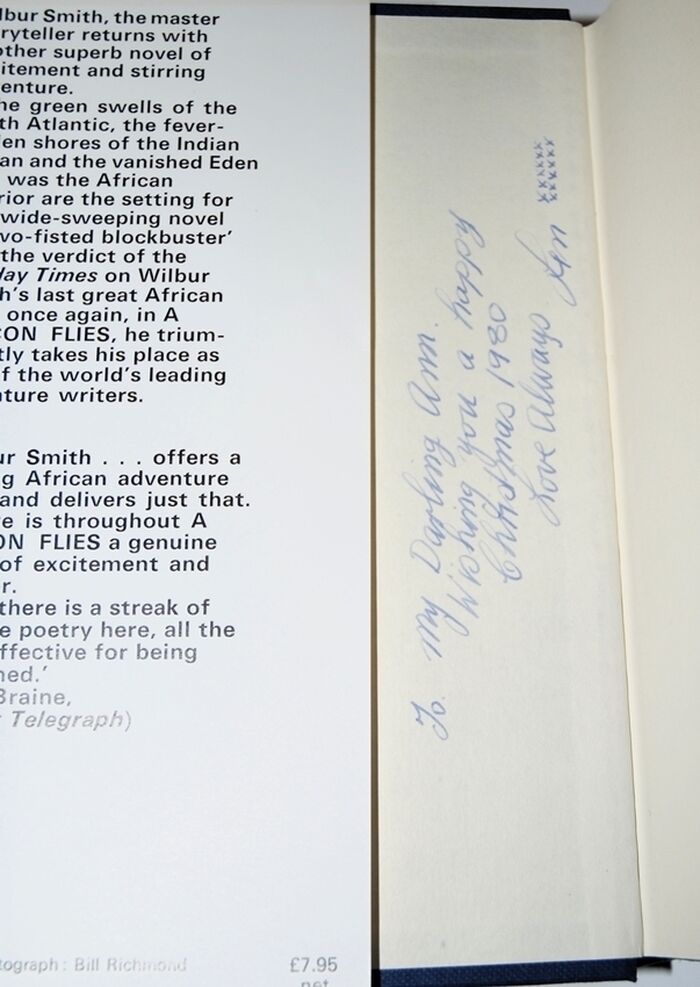 lbur Smith, the master
ryteller returns with
other superb novel of
itement and stirring
enture.
he green swells of the
th Atlantic, the fever-
en shores of the Indian
an and the vanished Eden
was the African
rior are the setting for
wide-sweeping novel
vo-fisted blockbuster'
the verdict of the
day Times on Wilbur
h's last great African
once again, in A
CON FLIES, he trium-
tly takes his place as
f the world's leading
nture writers.
ur Smith . . . offers a
g African adventure
and delivers just that.
e is throughout A
ON FLIES a genuine
of excitement and
r.
there is a streak of
e poetry here, all the
ffective for being
ned.'
Braine,
Telegraph)
tograph : Bill Richmond
£7.95
net
To. My Darling Ann.
Wishing you a happy
Christmas 1980
Love Always
xxxxxx
xxxxxx